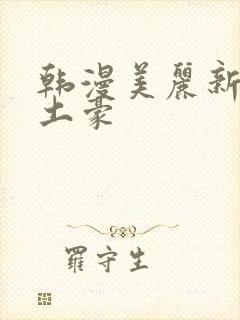 韩漫美麗新
土豪
羅守生